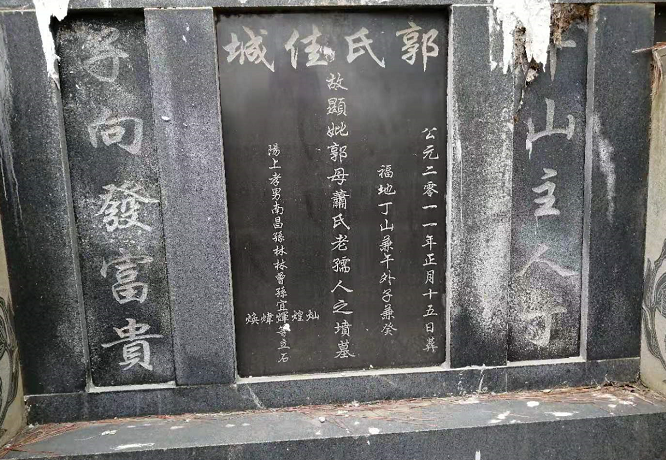 郭氏佳城
山主人丁
公元二零一一年正月十五日葬
福地丁山兼午外子兼癸
故顯妣郭母蕭氏老孺人之墳墓
陽上孝男南昌孫林林曾孫宜
灿煌輝煒煥
等立石
子向發富貴